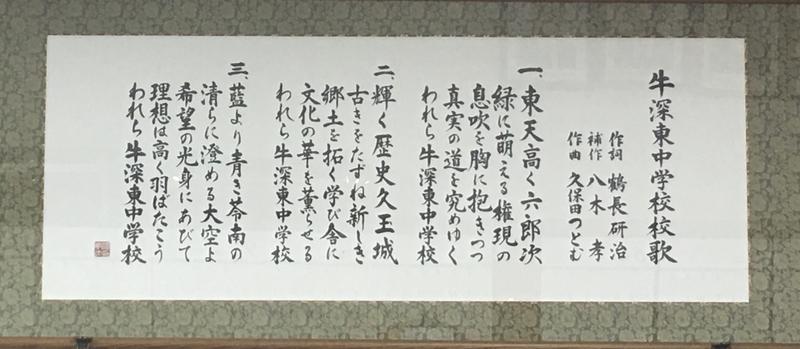 牛深東中学校校歌
作詞 鶴長研治
補作 八木 孝
作曲 久保田つとむ
一、東天高く六郎次
緑に萌える権現の
息吹を胸に抱きつつ
真実の道を究めゆく
われら牛深東中学校
二、輝く歴史久玉城
古きをたずね新しき
郷土を拓く学び舎に
文化の華を薫らせる
われら牛深東中学校
三、藍より青き苓南の
清らに澄める大空よ
希望の光身にあびて
理想は高く羽ばたこう
われら牛深東中学校